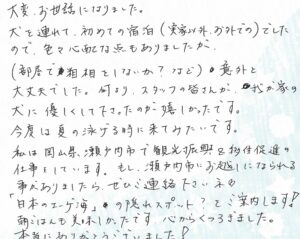 大変、お世話になりました。
犬を連れて、初めての宿泊(実家以外、お外での)でした
ので、色々心配な点もありましたが、
(部屋で粗相としないか?など)意外と
大丈夫でした。何より、スタッフの皆さんが、我が家の
犬に優しくして下さったのが嬉しかったです。
今度は夏の泳げる時に来てみたいです。
私は岡山県、瀬戸内市で観光振興&移住促進の
仕事をしています。もし、瀬戸内市にお越しになられる
事がありましたら、ぜひご連絡下さいネ
"日本のエーゲ海"の隠れスポット?をご案内します!
朝ごはんも美味しかったです。心からくつろぎました。
本当にありがとうございました!